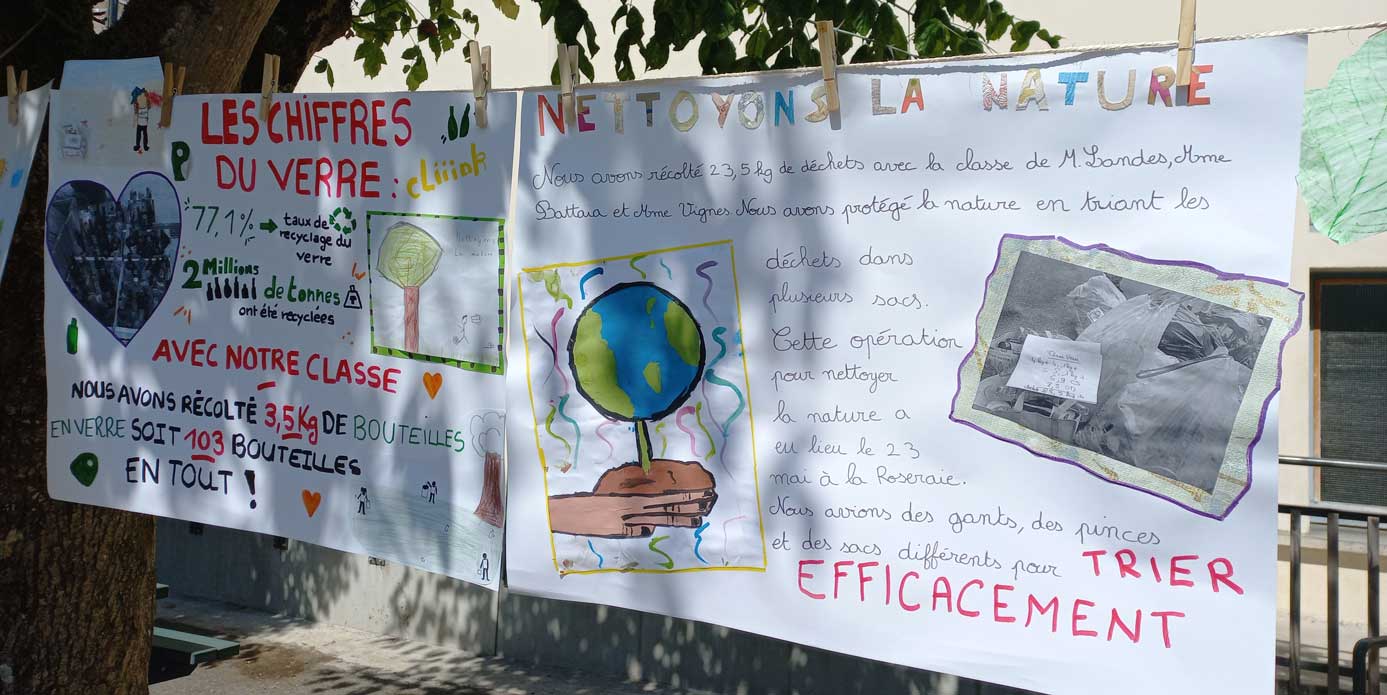 LES CHIFFRES
DU VERRE : cliiink
77,1% → taux de
recyclage du
verre
2 Millions
de tonnes
ont été recyclées
AVEC NOTRE CLASSE
NOUS AVONS RÉCOLTÉ 3,5Kg DE BOUTEILLES
EN VERRE SOIT 103 BOUTEILLES
EN TOUT !
NETTOYONS LA NATURE
Nous avons récolté 23,5 kg de déchets avec la classe de M. Landes, Mme
Battara et Mme Vignes. Nous avons protégé la nature en triant les
déchets dans
plusieurs sacs.
Cette opération
pour nettoyer
la nature a
eu lieu le 23
mai à la Roseraie.
Nous avions des gants, des pinces
et des sacs différents pour TRIER
EFFICACEMENT